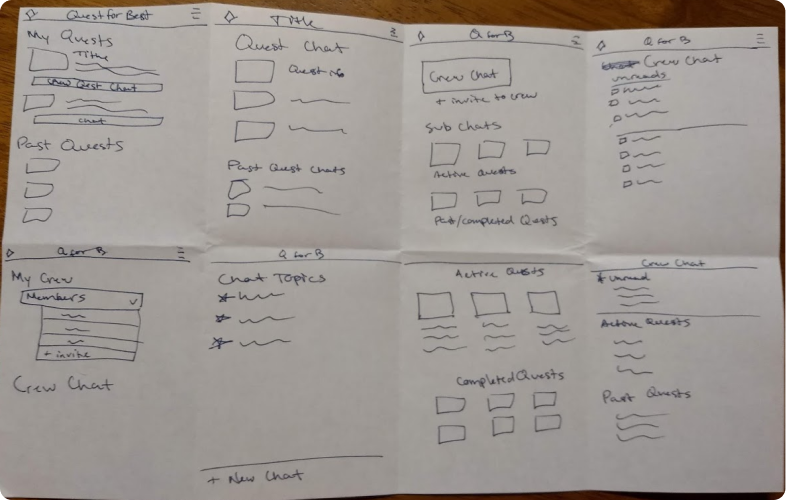 Quest for Best
My Quests
Title
Crew Quest Chat
Chat
Past Quests
Title
Quest Chat
Quest info
Past Quest Chats
Q for B
Crew Chat
+ invite to crew
Sub Chats
Active Quests
Past/completed Quests
Q for B
Crew Chat
unreads
Q for B
My Crew
Members
+ invite
Crew Chat
Q for B
Chat Topics
+ New Chat
Active Quests
Completed Quests
Crew Chat
unread
Active Quests
Past Quests